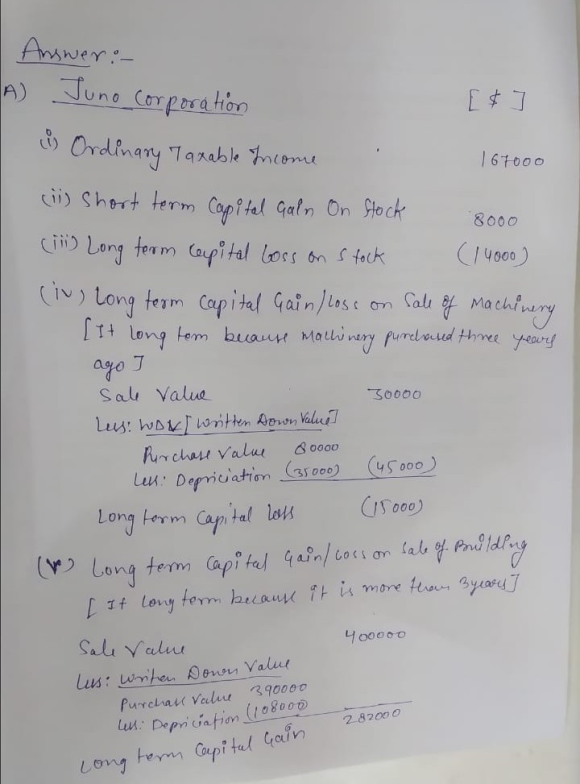 Answer:-
A) Juno Corporation [$]
(i) Ordinary Taxable Income 167000
(ii) Short term Capital Gain On Stock 8000
(iii) Long term Capital loss on Stock (14000)
(iv) Long term Capital Gain/Loss on Sale of Machinery
[It long term because Machinery purchased three years
ago]
Sale Value 30000
Less: WDV [Written Down Value]
Purchase Value 80000
Less: Depriciation (35000) (45000)
Long term Capital loss (15000)
(v) Long term Capital Gain/Loss on Sale of Building
[It long term because it is more than 3 years]
Sale Value 400000
Less: Written Down Value
Purchase Value 390000
Less: Depriciation (108000) 282000
Long term Capital Gain